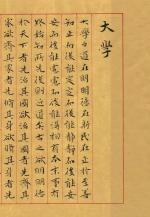 大学
大學之道在明明德在新民在止於至善
知止而后能定定而后能靜靜而后能安
安而后能慮慮而后能得物有本末事有
終始知所先後則近道矣古之欲明明德
於天下者先治其國欲治其國者先齊其
家欲齊其家者先脩其身欲脩其身者先